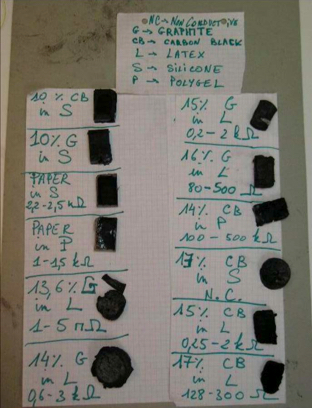 NC → NON CONDUCTIVE
G → GRAPHITE
CB → CARBON BLACK
L → LATEX
S → SILICONE
P → POLYGEL
10% CB
in S
10% G
in S
PAPER
in S
2,2-2,5 mΩ
PAPER
in P
1-1,5 kΩ
13,6% G
in L
1-5 mΩ
14% G
in L
0,6-3 kΩ
15% G
in L
0,2-2 kΩ
16% G
in L
80-500 Ω
14% CB
in P
100-500 kΩ
17% CB
in S
N.C.
15% CB
in L
0,25-2 kΩ
17% CB
in L
128-300 Ω